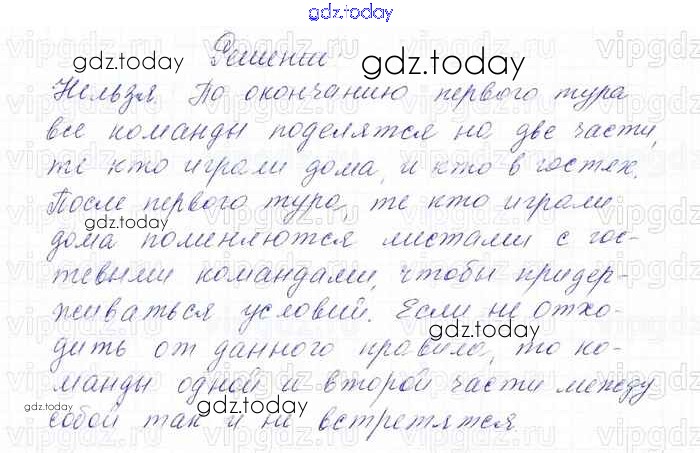 gdz.today
Решение.
gdz.today
Нельзя. По окончанию первого тура
все команды поделятся на две части,
те кто играли дома, и кто в гостях.
После первого тура, те кто играли
gdz.today
дома поменяются местами с гос-
тевыми командами, чтобы придер-
живаться условий. Если не отхо-
gdz.today
дить от данного правила, то ко-
манды одной и второй части между
gdz.today
gdz.today
собой так и не встретятся.